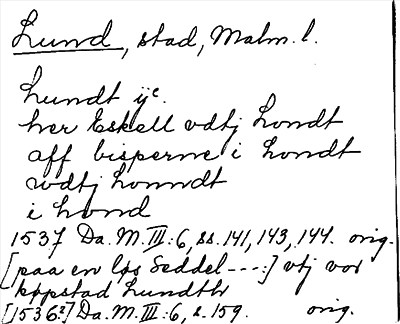 Lund, stad, Malm. l.
Lundt ijc.
her Eskell vdtj Londt
aff bisperne i Londt
wdtj Lonndt
i Lond
1537 Da. M. III: 6, ss. 141, 143, 144. orig.
[paa en løs Seddel ---:] vtj vor
køpstad Lundth
[1536?] Da. M. III: 6, s. 159. orig.